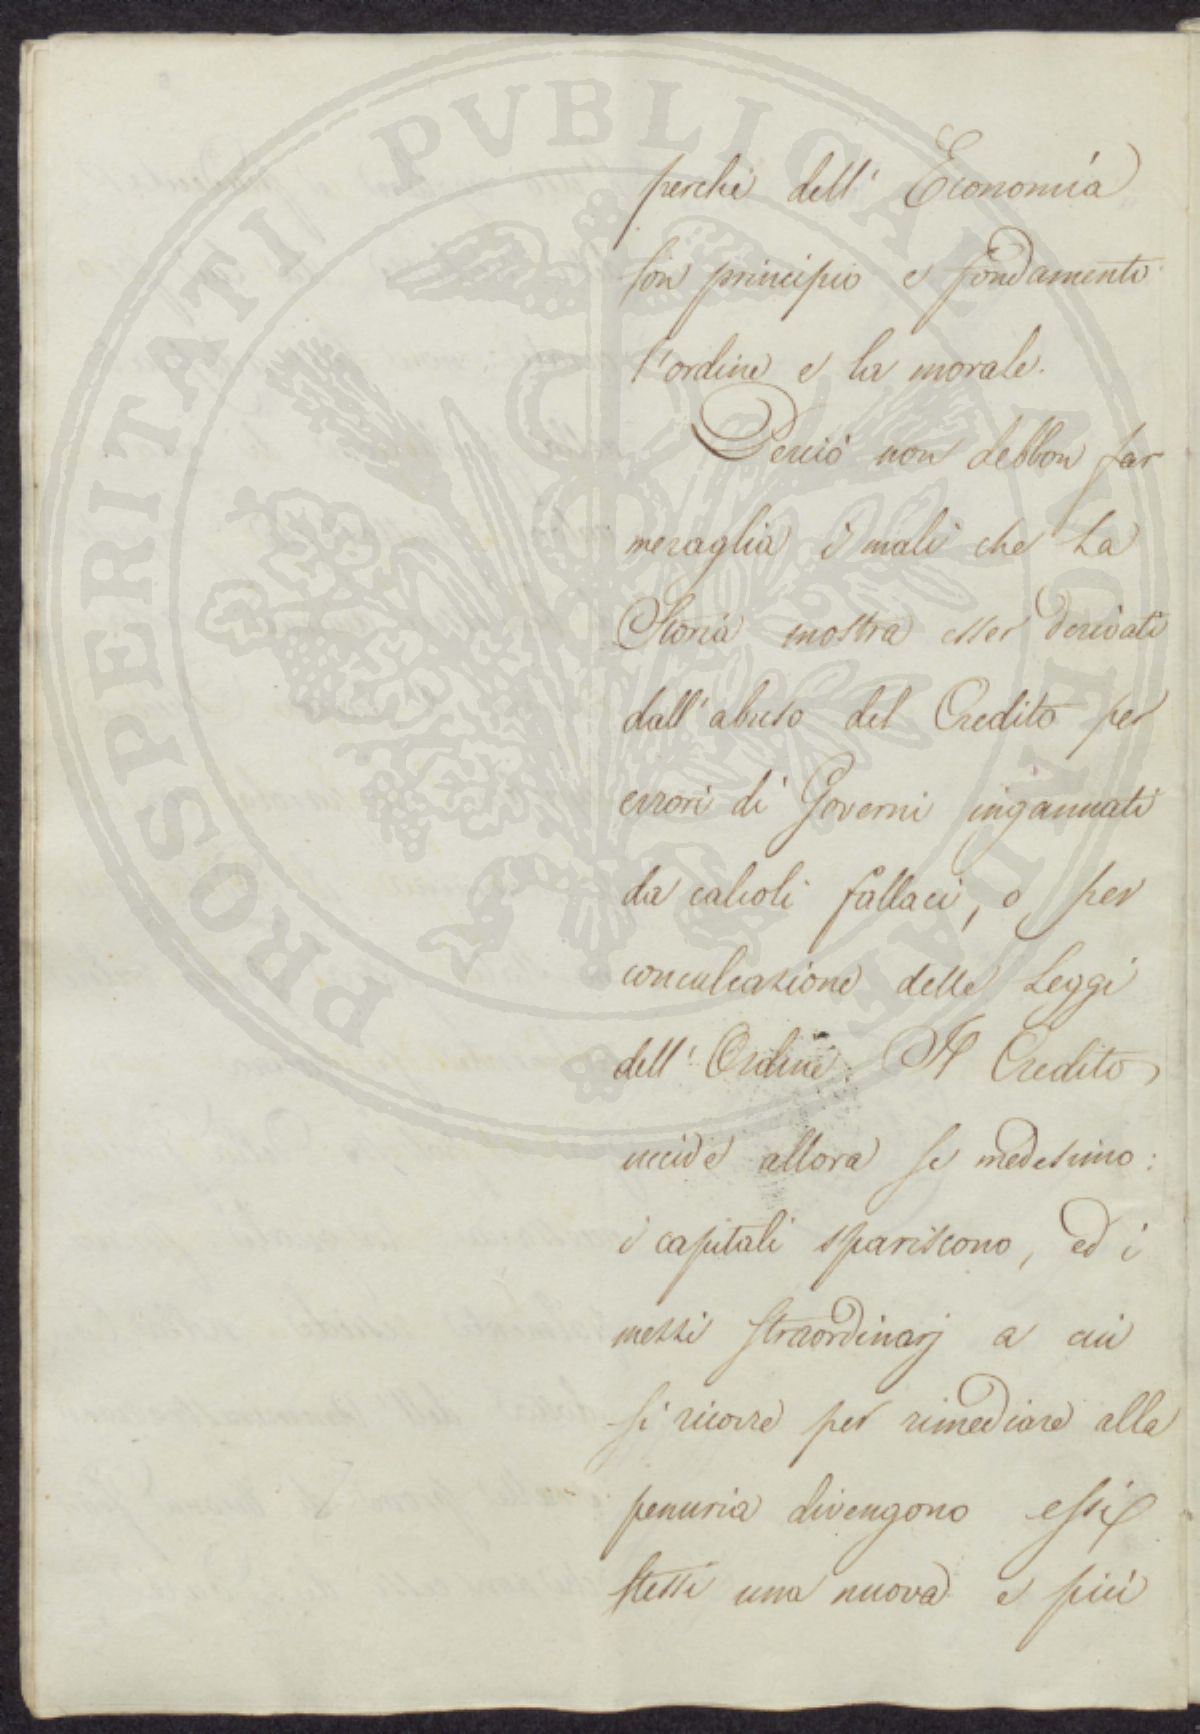 perchè dell' Economía
son principio e fondamento
l'ordine e la morale.
Perciò non debbon far
meraglia i mali che la
Storia mostra esser derivati
dall'abuso del Credito per
errori di Governi ingannati
da calcoli fallaci, o per
conculcazione delle Leggi
dell'Ordine. Il Credito
uccide allora se medesimo:
i capitali spariscono, ed i
mezzi straordinarj a cui
si ricorre per rimediare alla
penuria divengono essi
stessi una nuova e più
PROSPERITATI PVBLICAE AVGENDAE